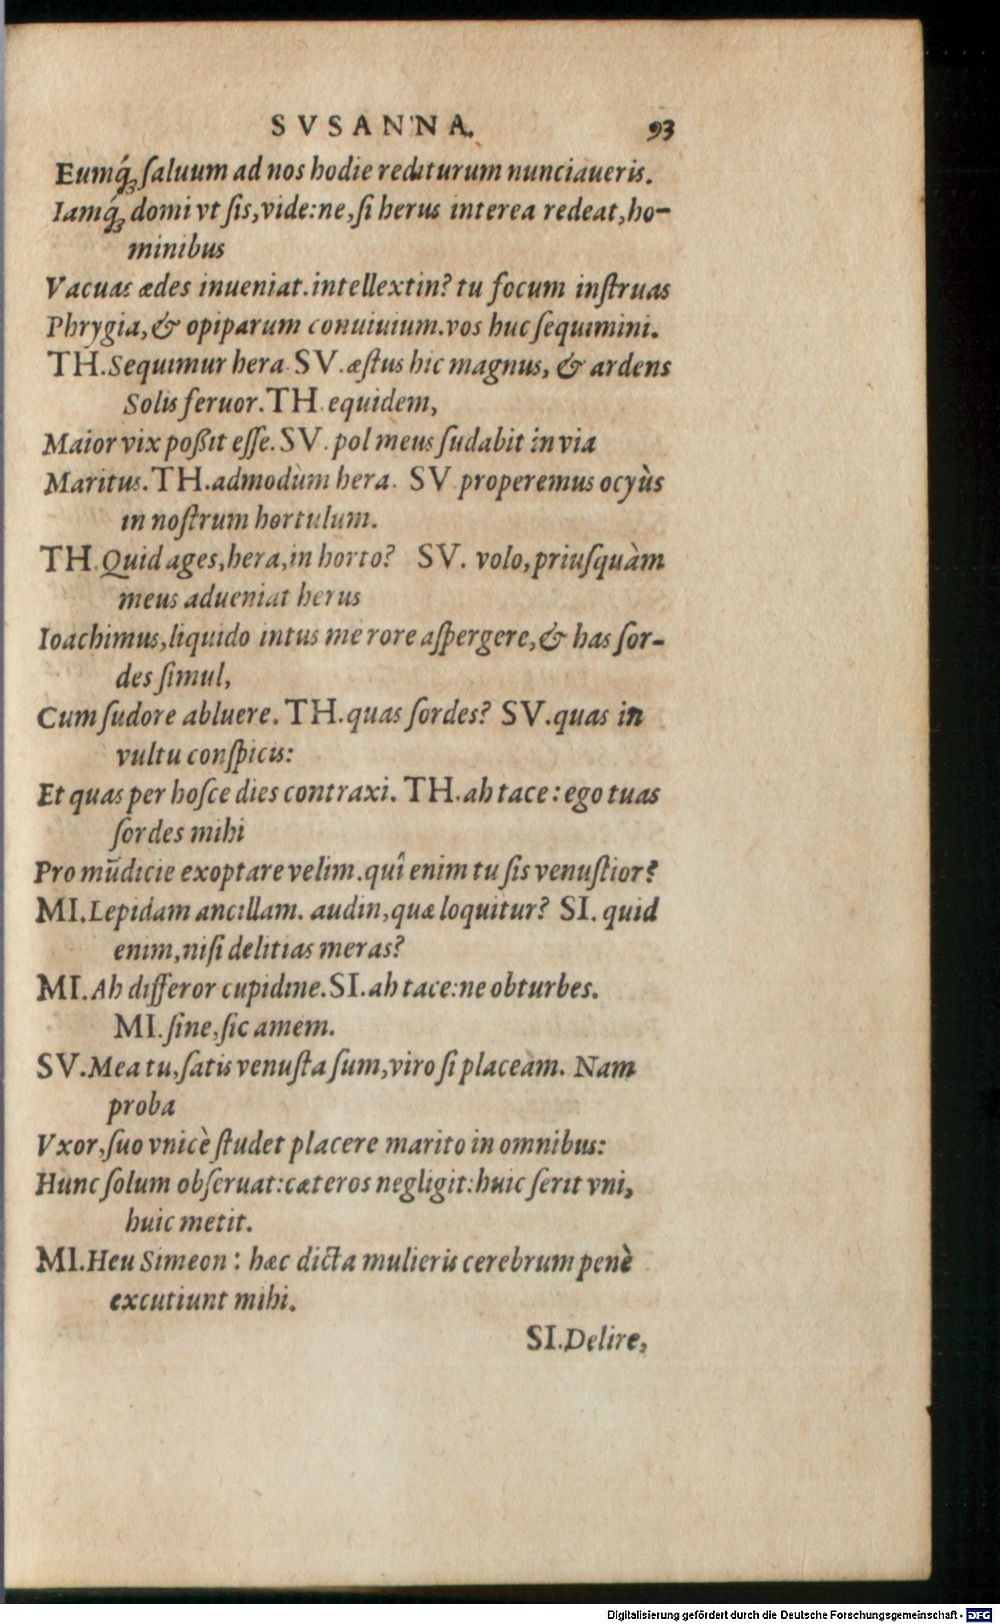 SVSANNA. 93
Eumq́ꝫ ſaluum ad nos hodie rediturum nunciaueris.
Iamq́ꝫ domi vt ſis,vide:ne,ſi herus interea redeat,ho-
minibus
Vacuas ædes inueniat.intellextin? tu focum inſtruas
Phrygia,& opiparum conuiuium.vos huc ſequimini.
TH.Sequimur hera. SV.æſtus hic magnus, & ardens
Solis feruor.TH.equidem,
Maior vix poßit eſſe.SV.pol meus ſudabit in via
Maritus.TH.admodùm hera. SV.properemus ocyùs
in noſtrum hortulum.
TH.Quid ages,hera,in horto? SV. volo,priuſquàm
meus adueniat herus
Ioachimus,liquido intus me rore aſpergere,& has ſor-
des ſimul,
Cum ſudore abluere. TH.quas ſordes? SV.quas in
vultu conſpicis:
Et quas per hoſce dies contraxi. TH.ah tace:ego tuas
ſordes mihi
Pro mūdicie exoptare velim.quî enim tu ſis venuſtior?
MI.Lepidam ancillam. audin,quæ loquitur? SI. quid
enim,niſi delitias meras?
MI.Ah differor cupidine.SI.ah tace:ne obturbes.
MI.ſine,ſic amem.
SV.Mea tu,ſatis venuſta ſum,viro ſi placeam. Nam
proba
Vxor,ſuo vnicè ſtudet placere marito in omnibus:
Hunc ſolum obſeruat:cæteros negligit:huic ſerit vni,
huic metit.
MI.Heu Simeon: hæc dicta mulieris cerebrum penè
excutiunt mihi.
SI.Delire,
Digitalisierung gefördert durch die Deutsche Forschungsgemeinschaft - DFG